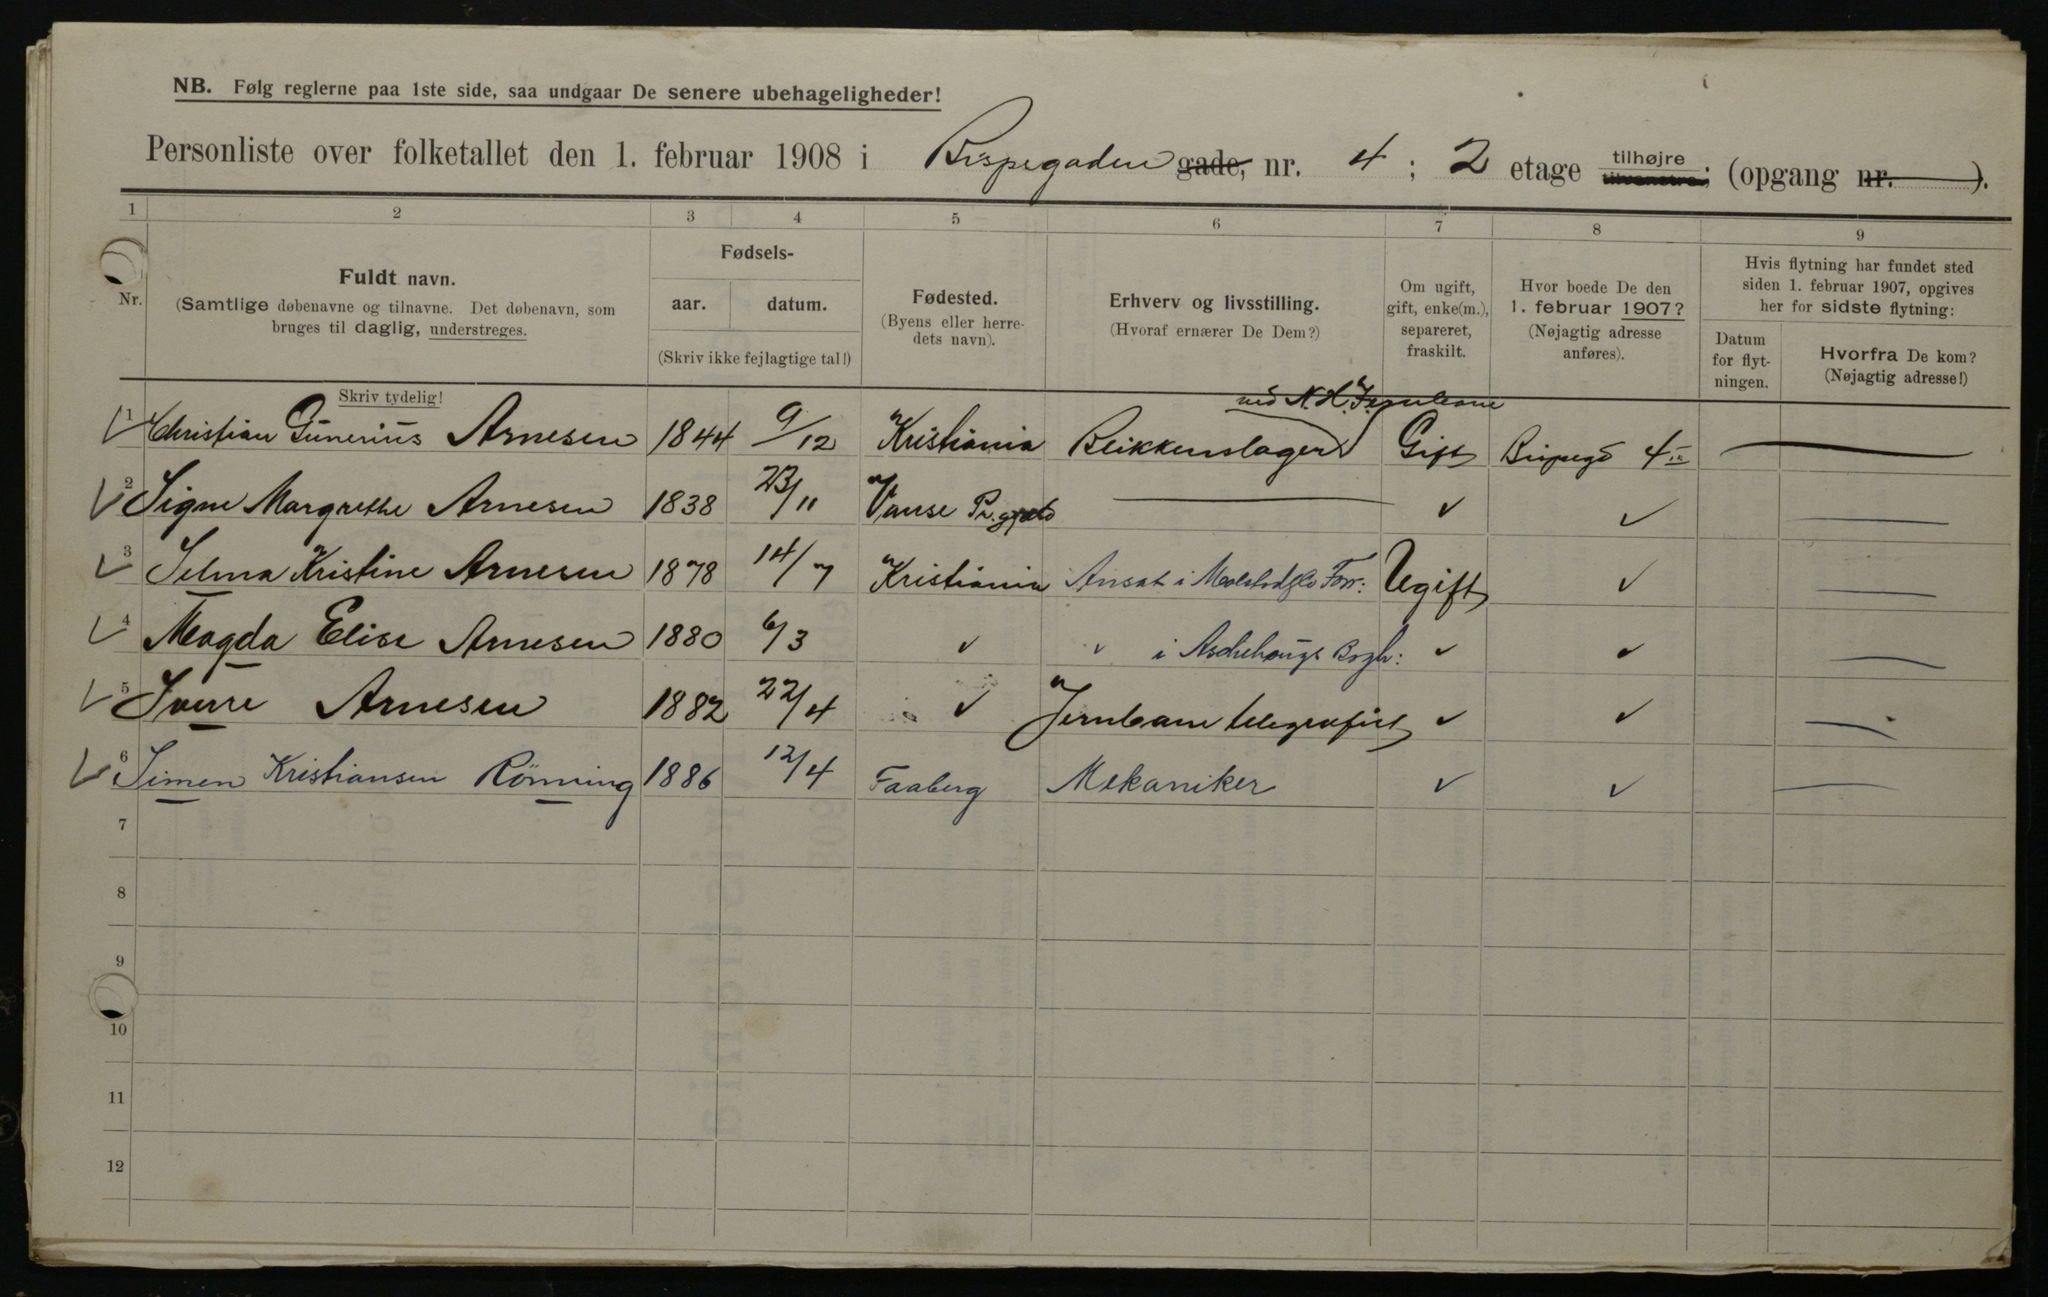 NB. Følg reglerne paa 1ste side, saa undgaar De senere ubehageligheder!
Personliste over folketallet den 1. februar 1908 i Bispegaden gade, nr. 4 ; 2 etage tilhøjre tilvenstre; (opgang nr. ).
1 2 3 4 5 6 7 8 9
Nr.
Fuldt navn.
(Samtlige døbenavne og tilnavne. Det døbenavn, som
bruges til daglig, understreges.
Skriv tydelig!
Fødsels-
aar. datum.
(Skriv ikke fejlagtige tal!)
Fødested.
(Byens eller herre-
dets navn).
Erhverv og livsstilling.
(Hvoraf ernærer De Dem?)
Om ugift,
gift, enke(m.),
separeret,
fraskilt.
Hvor boede De den
1. februar 1907?
(Nøjagtig adresse
anføres).
Hvis flytning har fundet sted
siden 1. februar 1907, opgives
her for sidste flytning:
Datum
for flyt-
ningen.
Hvorfra De kom?
(Nøjagtig adresse!)
ved N. H. Jernbane
1 Christian Gunerius Arnesen 1844 9/12 Kristiania Blikkenslager Gift Bispegd 4
2 Signe Margrethe Arnesen 1838 23/11 Vanse ✓ ✓
3 Selma Kristine Arnesen 1878 14/7 Kristiania Ansat i For: Ugift ✓
4 Magda Elise Arnesen 1880 6/3 ✓ ✓ i Aschehougs Bogh: ✓ ✓
5 Sverre Arnesen 1882 22/4 ✓ Jernbane telegrafist ✓ ✓
6 Simen Kristiansen Rönning 1886 12/4 Faaberg Mekaniker ✓ ✓
7
8
9
10
11
12